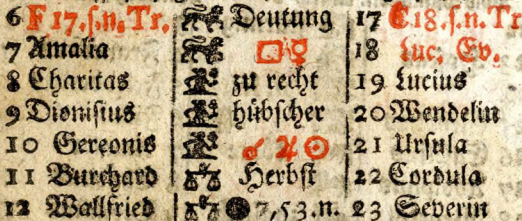 6 F 17. s. n. Tr. Deutung 17 C 18. s. n. Tr
7 Amalia □ ☿ 18 Luc. Ev.
8 Charitas zu recht 19 Lucius
9 Dionisius hübscher 20 Wendelin
10 Gereonis ☌ ♃ ☉ 21 Ursula
11 Burchard Herbst 22 Cordula
12 Wallfried 7,53. n. 23 Severin